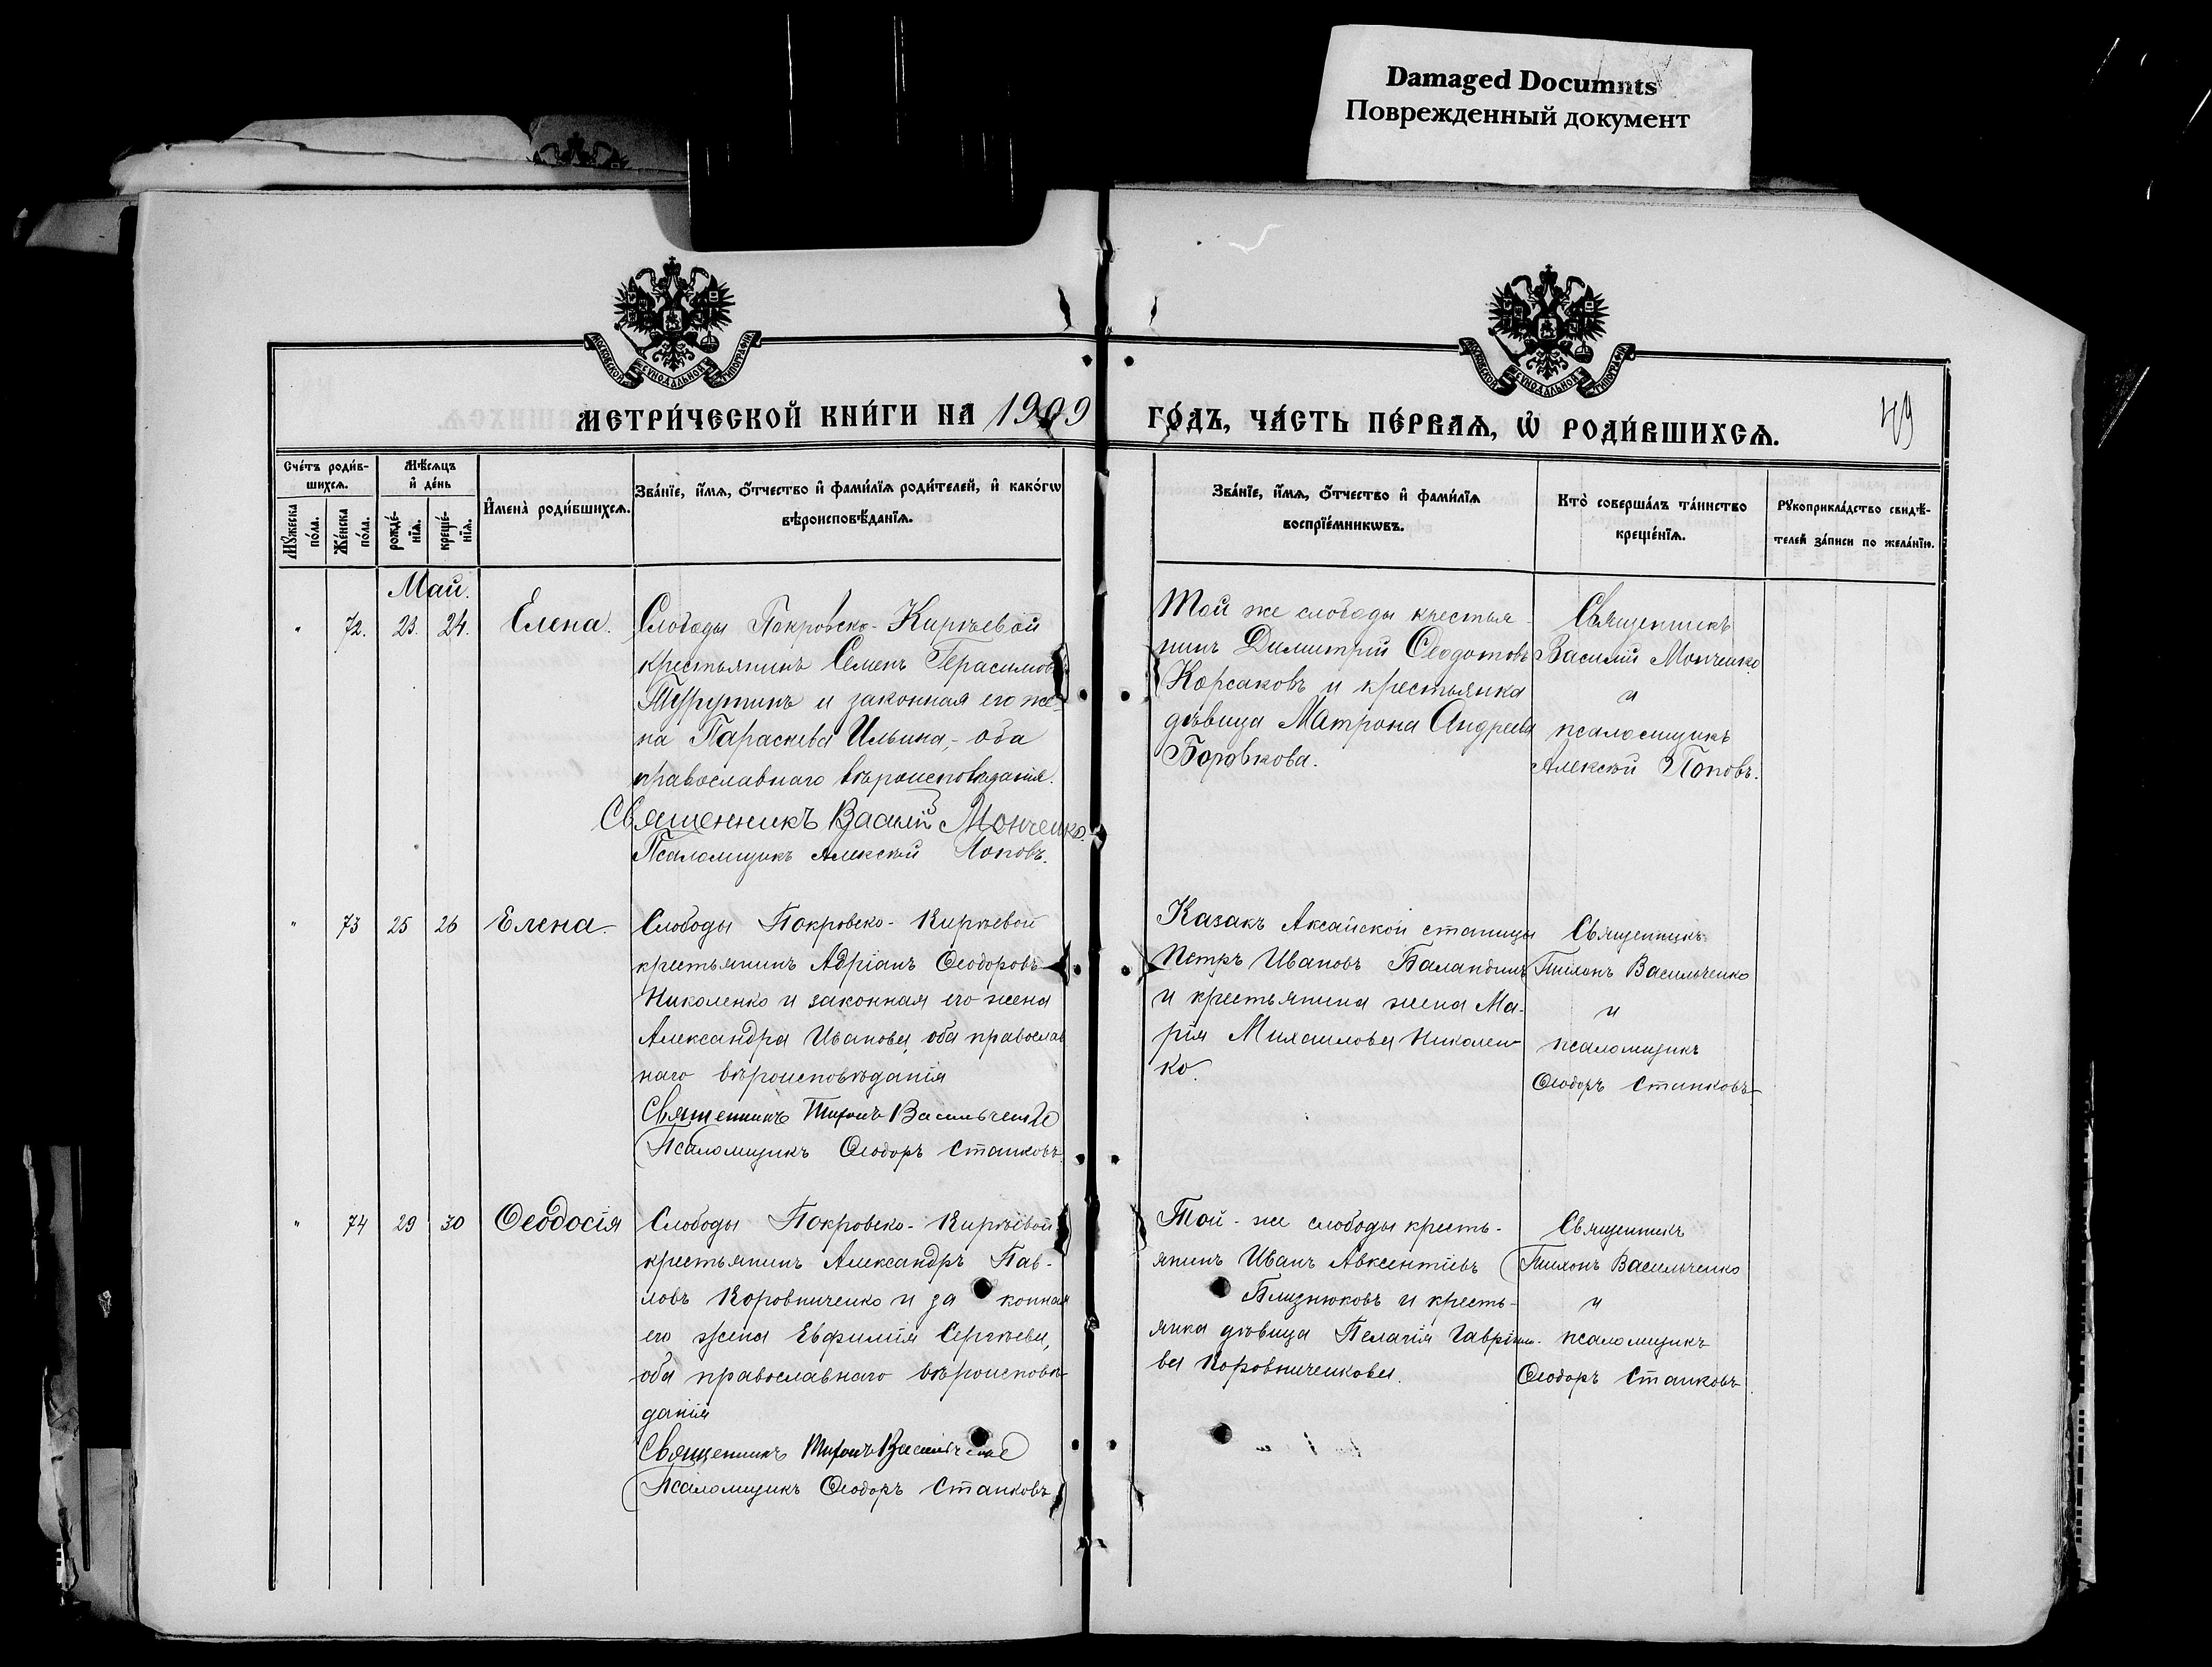 Damaged Documnts
Поврежденный документ
МОСКОВСКОЙ СѴНОДАЛЬНОЙ ТИПОГРАФІИ
МОСКОВСКОЙ СѴНОДАЛЬНОЙ ТИПОГРАФІИ
МЕТРИ́ЧЕСКОЙ КНИ́ГИ НА 1909
ГО́ДЪ, ЧА́СТЬ ПЕ́РВАѦ, Ѡ҆ РОДИ́ВШИХСѦ.
49
Сче́тъ роди́в-
шихсѧ.
Мѣ́сѧцъ
и҆ де́нь
Мꙋ́жеска по́ла.
Же́нска по́ла.
рожде́-
нїѧ.
креще́-
нїѧ.
И҆мена̀ роди́вшихсѧ.
Зва́нїе, и҆́мѧ, ѻ҆́тчество и҆ фами́лїѧ роди́телей, и҆ како́гѡ
вѣроисповѣ́данїѧ.
Зва́нїе, и҆́мѧ, ѻ҆́тчество и҆ фами́лїѧ
воспрїе́мникѡвъ.
Кто̀ соверша́лъ та́инство
креще́нїѧ.
Рꙋкоприкла́дство свидѣ́-
телей за́писи по жела́нїю.
Май.
" 72. 23. 24. Елена.
Слободы Покровско-Киръевой
крестьянинъ Семенъ Герасимовъ
Турутинъ и законная его же-
на Параскева Ильина,- оба
православнаго вѣроисповѣданія.
Священникъ Василій Монченко.
Псаломщикъ Алексѣй Поповъ.
Той же слободы крестья-
нинъ Димитрій Ѳеодотовъ
Корсаковъ и крестьянка
дѣвица Матрона Андреева
Боровкова.
Священникъ
Василій Монченко
и
псаломщикъ
Алексѣй Поповъ.
" 73 25 26 Елена.
Слободы Покровско-Кирѣевой
крестьянинъ Адріанъ Ѳеодоровъ
Николенко и законная его жена
Александра Иванова, оба православ
наго вѣроисповѣданія
Священникъ Тихонъ Васильченко
Псаломщикъ Ѳеодоръ Станковъ
Казакъ Аксайской станицы
Петръ Ивановъ Баландинъ
и крестьянина жена Ма-
рія Михаилова Николен-
ко.
Священникъ
Тихонъ Васильченко
и
псаломщикъ
Ѳеодоръ Станковъ
" 74 29 30 Ѳеодосія
Слободы Покровско-Кирѣевой
крестьянинъ Александръ Пав-
ловъ Коровниченко и за конная
его жена Евфимія Сергѣева,
оба православнаго вѣроисповѣ-
данія
Священникъ Тихонъ Васильченко
Псаломщикъ Ѳеодоръ Станковъ
Той-же слободы кресть-
янинъ Иванъ Авксентіевъ
Близнюковъ и кресть-
янка дѣвица Пелагія Гавріило-
ва Коровниченкова.
Священникъ
Тихонъ Васильченко
и
псаломщикъ
Ѳеодоръ Станковъ